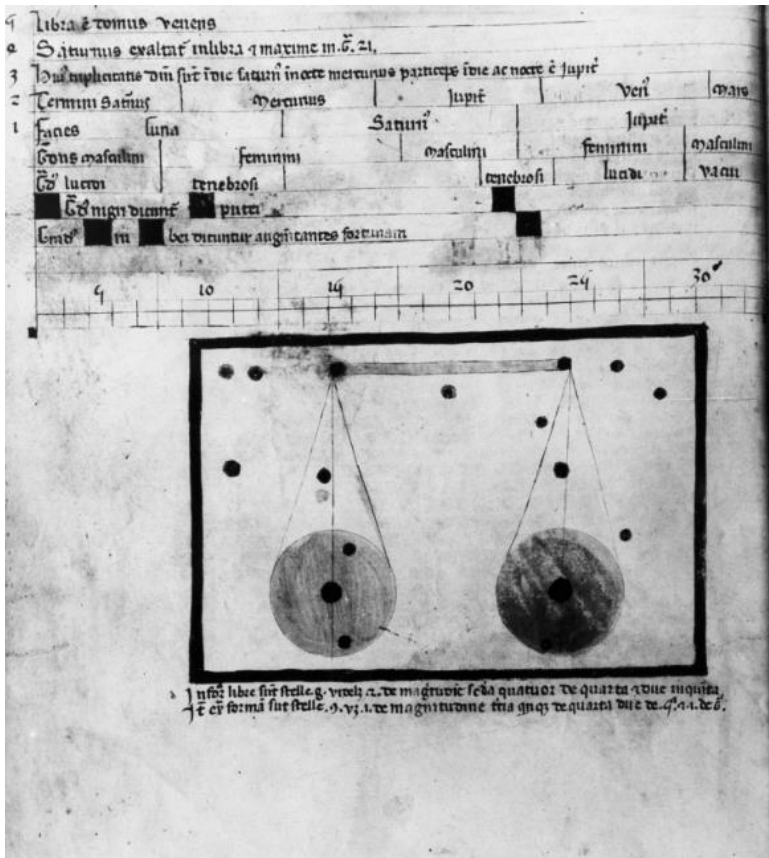 4 Libra ē domus veneris
2 Saturnus exaltat in libra 7 maxime in. G̃. 21.
3 triplicitatis dn̄i sūt ī die saturn' ī nocte mercurius particeps ī die ac nocte ē Jupit̃
2 Termini Saturnus Mercurius Jupit̃ Ven' Mars
1 facies luna Saturn' Jupit̃
G̃dus masculini feminini masculini feminini masculini
G̃d' lucidi tenebrosi tenebrosi lucidi vacui
G̃d' nigri dicunt̃ putei
Grad' in bei dicuntur augm̃tantes fortunam
4 10 14 20 24 30
In for̃ libre sūt stelle. 8. videlz 2. de magnitudiē sc̃da quatuor de quarta 7 due in quīta
It̃ ex̃ formā sūt stelle. 9. vz. 1. de magnitudine t̃tia quinqz de quarta due de. 4ª. 7 1. de 6.